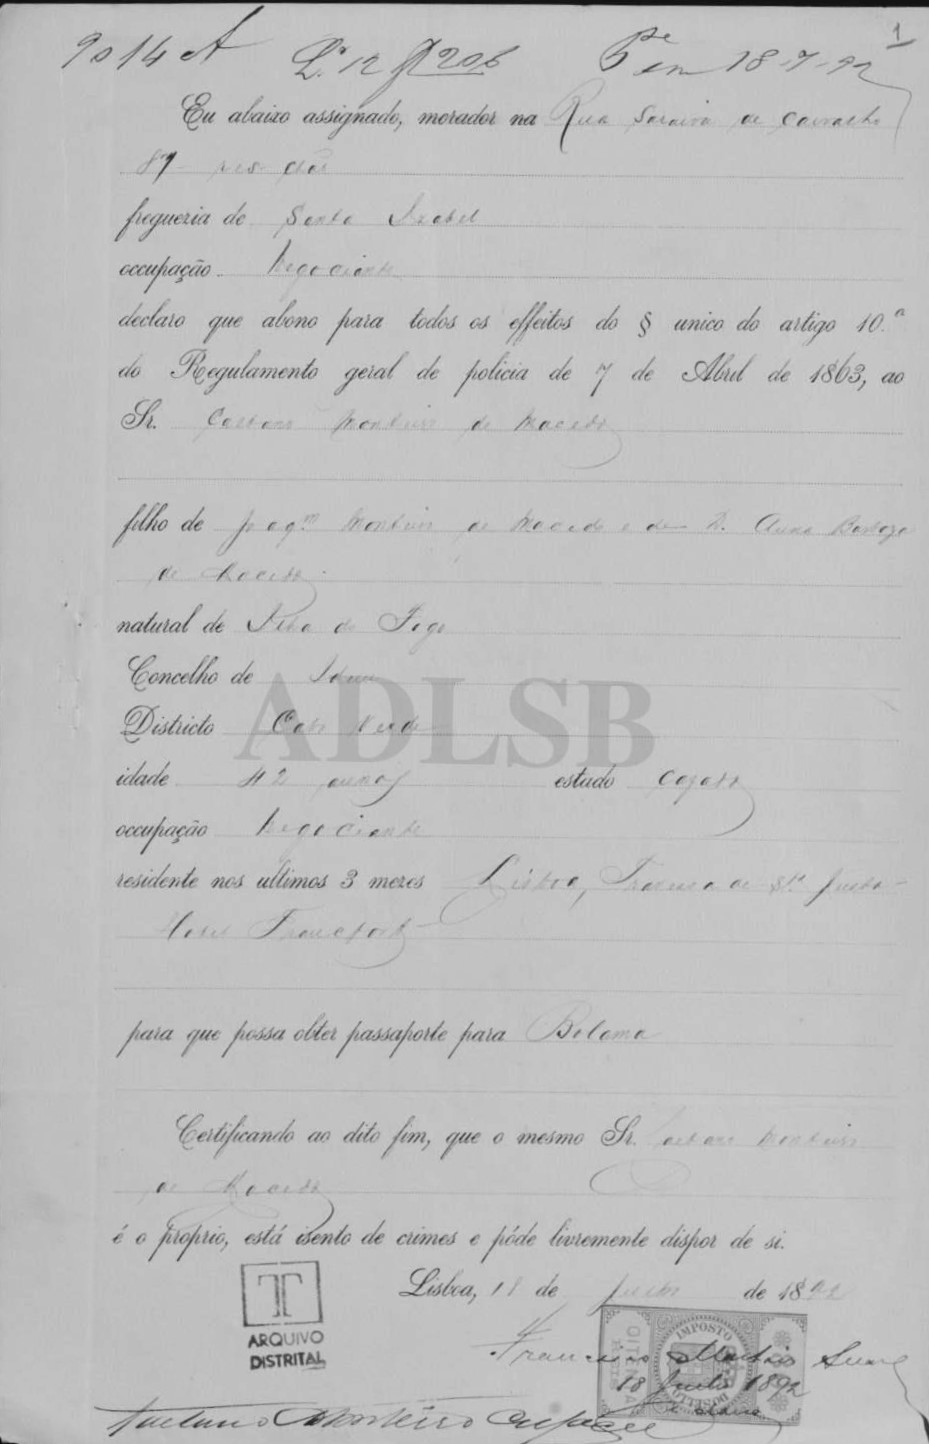 1
9014 A L.º 12 f 206 Pe em 18-7-92
Eu abaixo assignado, morador na Rua Saraiva de Carvalho
87 res chão
freguezia de Santa Izabel
occupação Negociante
declaro que abono para todos os effeitos do § unico do artigo 10.º
do Regulamento geral de policia de 7 de Abril de 1863, ao
Sr. Caetano Monteiro de Macedo
filho de Joaqm Monteiro de Macedo e de D. Anna Barboza
de Macedo
natural de Ilha do Fogo
Concelho de Idem
Districto Cabo Verde
ADLSB
idade 42 annos estado Cazado
occupação Negociante
residente nos ultimos 3 mezes Lisboa, Travessa de Sta Justa
Hotel Francfort
para que possa obter passaporte para Bolama
Certificando ao dito fim, que o mesmo Sr. Caetano Monteiro
de Macedo
é o proprio, está isento de crimes e póde livremente dispor de si.
Lisboa, 18 de Julho de 1892
IMPOSTO
DO SELLO
ARQUIVO
DISTRITAL
Francisco Martins
18 Julho 1892
Caetano Monteiro